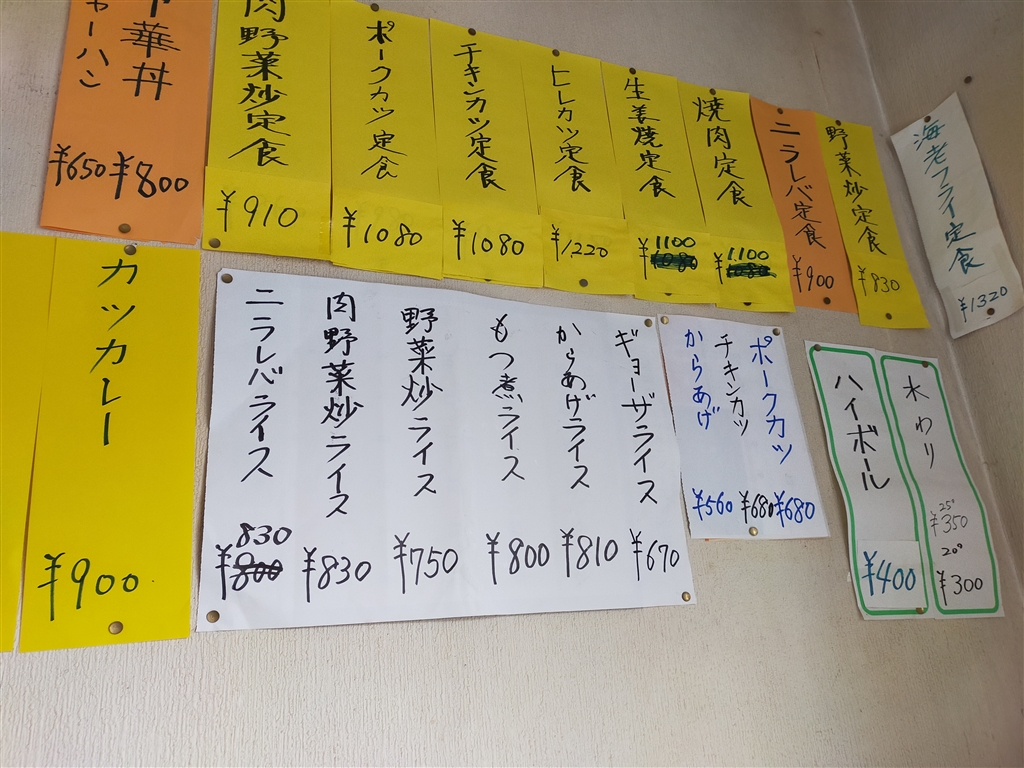 中華丼
¥800
チャーハン
¥650
肉野菜炒定食
¥910
ポークカツ定食
¥1080
チキンカツ定食
¥1080
ヒレカツ定食
¥1220
生姜焼定食
1100
¥1080
焼肉定食
1100
¥1080
ニラレバ定食
¥900
野菜炒定食
¥830
海老フライ定食
¥1320
カツカレー
¥900
ギョーザライス
¥670
からあげライス
¥810
もつ煮ライス
¥800
野菜炒ライス
¥750
肉野菜炒ライス
¥830
ニラレバライス
830
¥800
ポークカツ
¥680
チキンカツ
¥680
からあげ
¥560
水わり
25°
¥350
20°
¥300
ハイボール
¥400